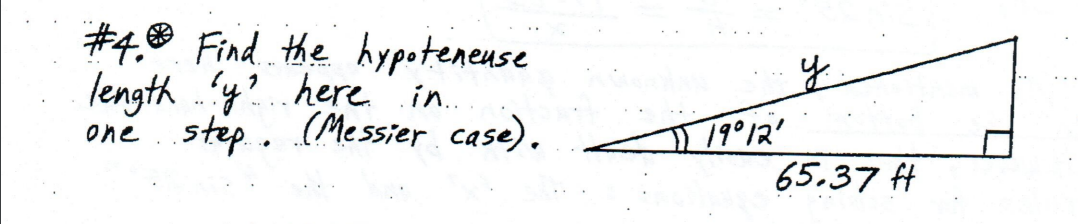 #4.⊛ Find the hypoteneuse
length 'y' here in
one step. (Messier case).
y
19°12'
65.37 ft